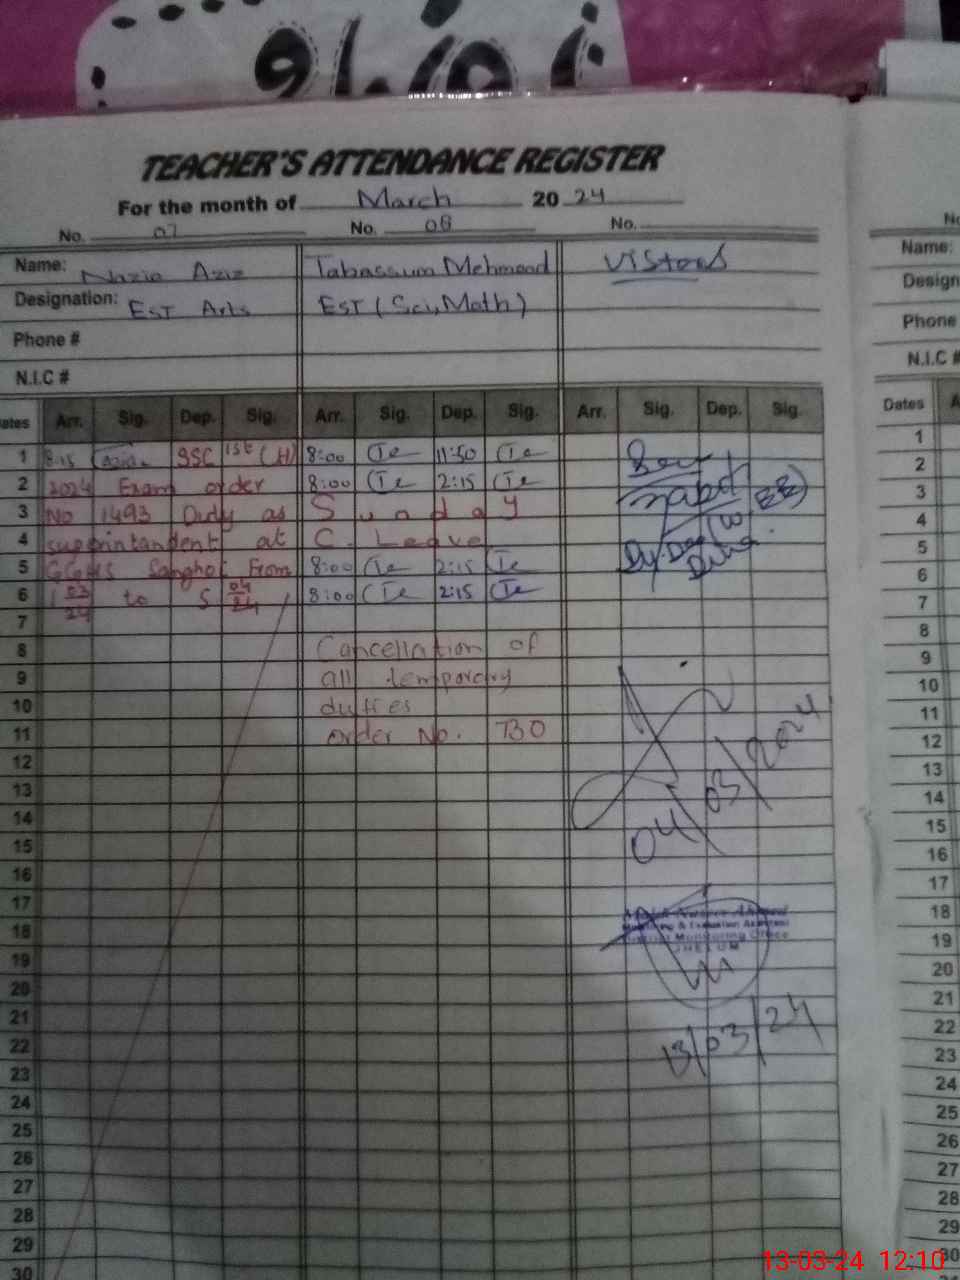 TEACHER'S ATTENDANCE REGISTER
For the month of March 2024
No. 07 No. 08 No.
Name: Nazia Aziz Tabassum Mehmood Vistors
Designation: EST Arts EST (Sci, Math)
Phone #
N.I.C #
ates Arr. Sig. Dep. Sig. Arr. Sig. Dep. Sig. Arr. Sig. Dep. Sig.
1 8:15 SSC 1st (A) 8:00 11:50
2 2024 Exam order 8:00 2:15
3 No 1493 Duty as Sunday
4 suprintandent at C. Leave
5 GGHS Sanghoi From 8:00 2:15
6 1 03/24 to 5 04/24 8:00 2:15
7
8 Cancellation of
9 all temporary
10 duties
11 order No. 730
12
13
14
15
16
17
18
19
20
21
22
23
24
25
26
27
28
29
30
04/03/2024
Monitoring & Evaluation Assistant
District Monitoring Office
JHELUM
13/03/24
No
Name:
Design
Phone
N.I.C #
Dates A
1
2
3
4
5
6
7
8
9
10
11
12
13
14
15
16
17
18
19
20
21
22
23
24
25
26
27
28
29
30
13-03-24 12:10